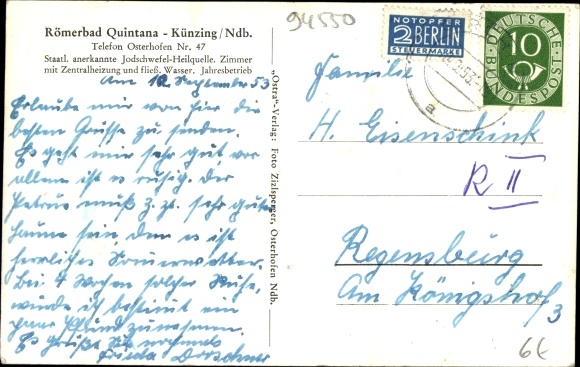 94550
Römerbad Quintana - Künzing/Ndb.
Telefon Osterhofen Nr. 47
Staatl. anerkannte Jodschwefel-Heilquelle. Zimmer
mit Zentralheizung und fließ. Wasser. Jahresbetrieb
Am 12. September 53
Erlaube mir von hier die
besten Grüsse zu senden.
Es geht mir sehr gut, vor
allem ist es ruhig. Der
Petrus muß z. zt. sehr guter
Laune sein denn es ist
herrliches Sommerwetter.
Bei 4 Wochen solcher Ruhe,
würde ich bestimmt ein
paar Pfund zunehmen.
Es grüßt Sie nochmals
Frieda
„Ostra"-Verlag: Foto Zizlsperger, Osterhofen Ndb.
NOTOPFER
2 BERLIN
STEUERMARKE
DEUTSCHE
10
BUNDESPOST
Familie
H. Eisenschink
R II
Regensburg
Am Königshof 3
6€